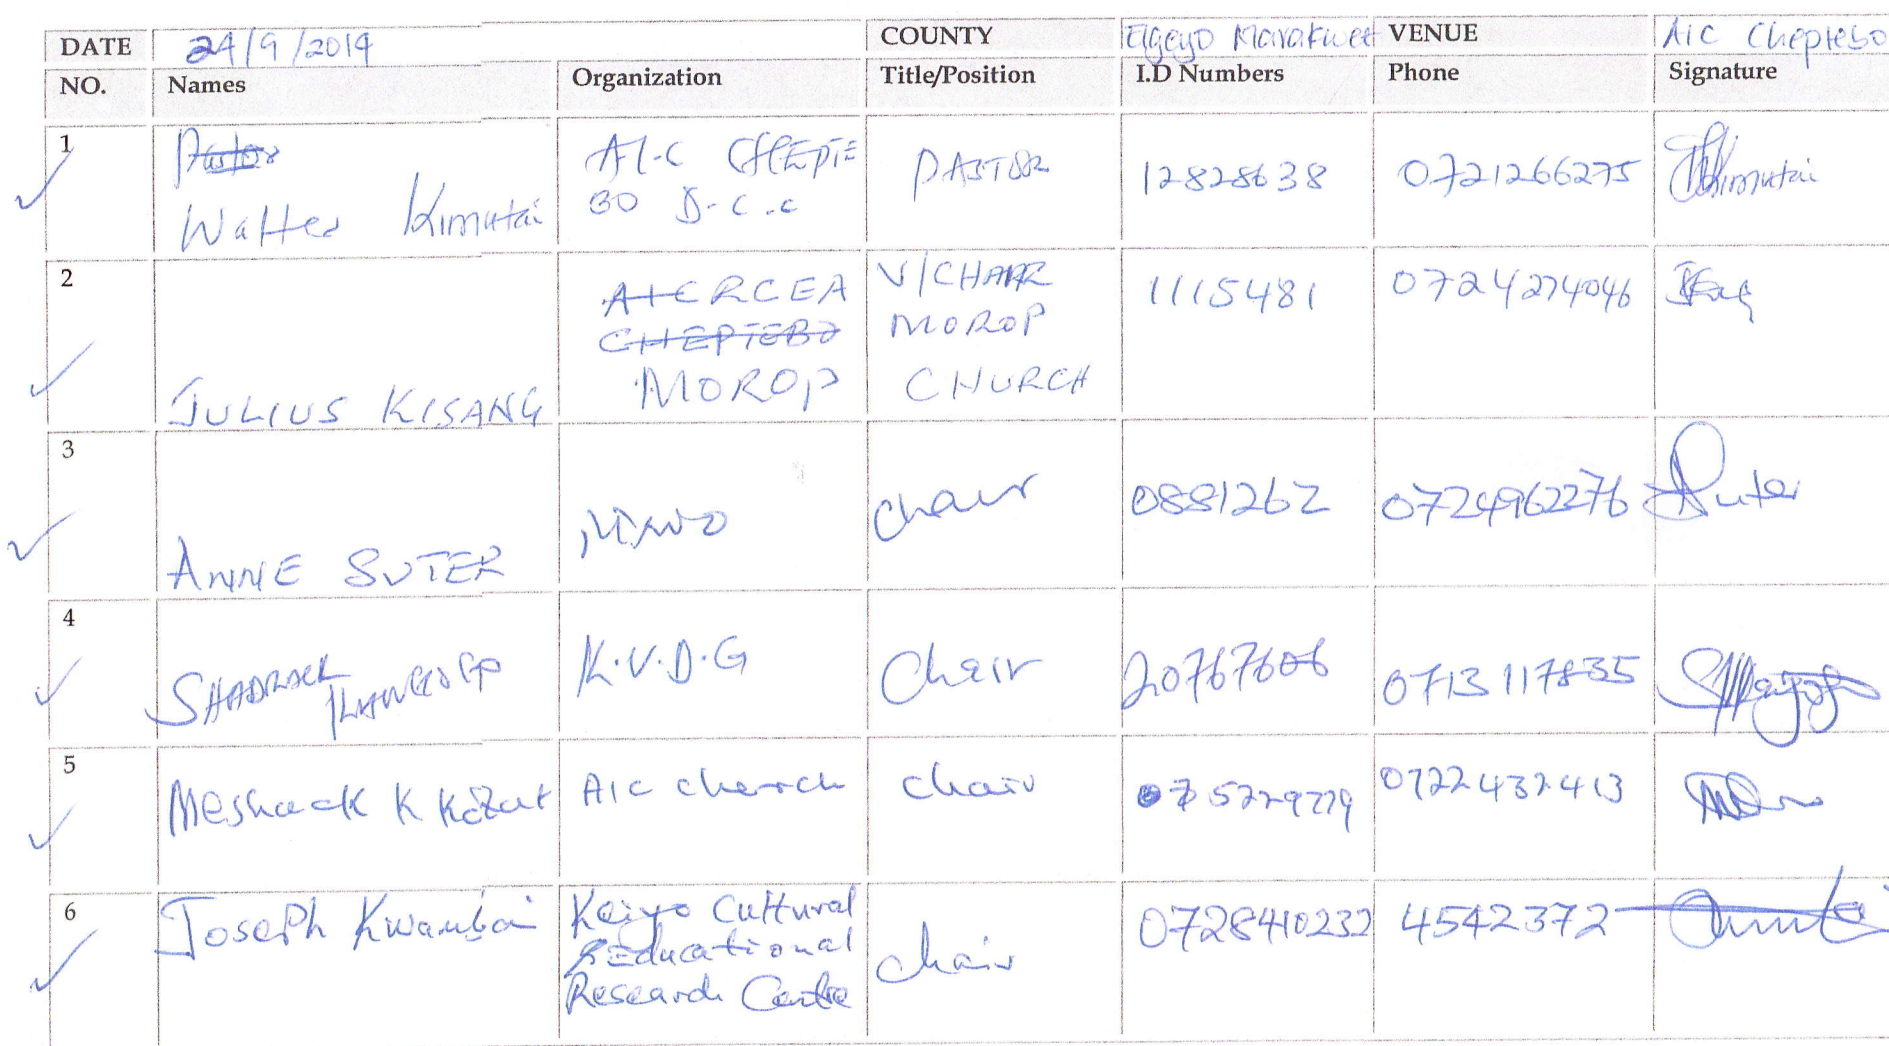 DATE 24/9/2019 COUNTY Elgeyo Marakwet VENUE AIC Cheptebo
NO. Names Organization Title/Position I.D Numbers Phone Signature
1 Pastor Walter Kimutai A.I.C CHEPTEBO D.C.C PASTOR 12828638 0721266275 Kimutai
2 JULIUS KISANG AIC RCEA CHEPTEBO MOROP V/CHAIR MOROP CHURCH 1115481 0724274046
3 ANNE SUTER chair 0881262 0724962276 Suter
4 SHADRACK K.V.D.G Chair 20767606 0713117835
5 Meshack K AIC church chair 5229779 0722432413
6 Joseph Kwambai Keiyo Cultural & Educational Research Centre chair 0728410232 4542372